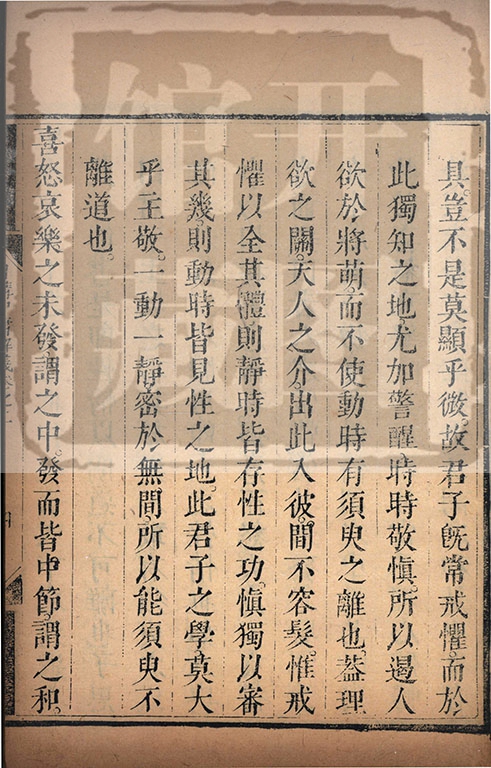 具。豈不是莫顯乎微。故君子旣常戒懼。而於
此獨知之地。尤加警醒。時時敬愼。所以遏人
欲於將萌。而不使動時有須臾之離也。葢理
欲之關。天人之介。出此入彼。間不容髮。惟戒
懼以全其體。則靜時皆存性之功。愼獨以審
其幾。則動時皆見性之地。此君子之學莫大
乎主敬。一動一靜。密於無間。所以能須臾不
離道也。
喜怒哀樂之未發。謂之中。發而皆中節。謂之和。